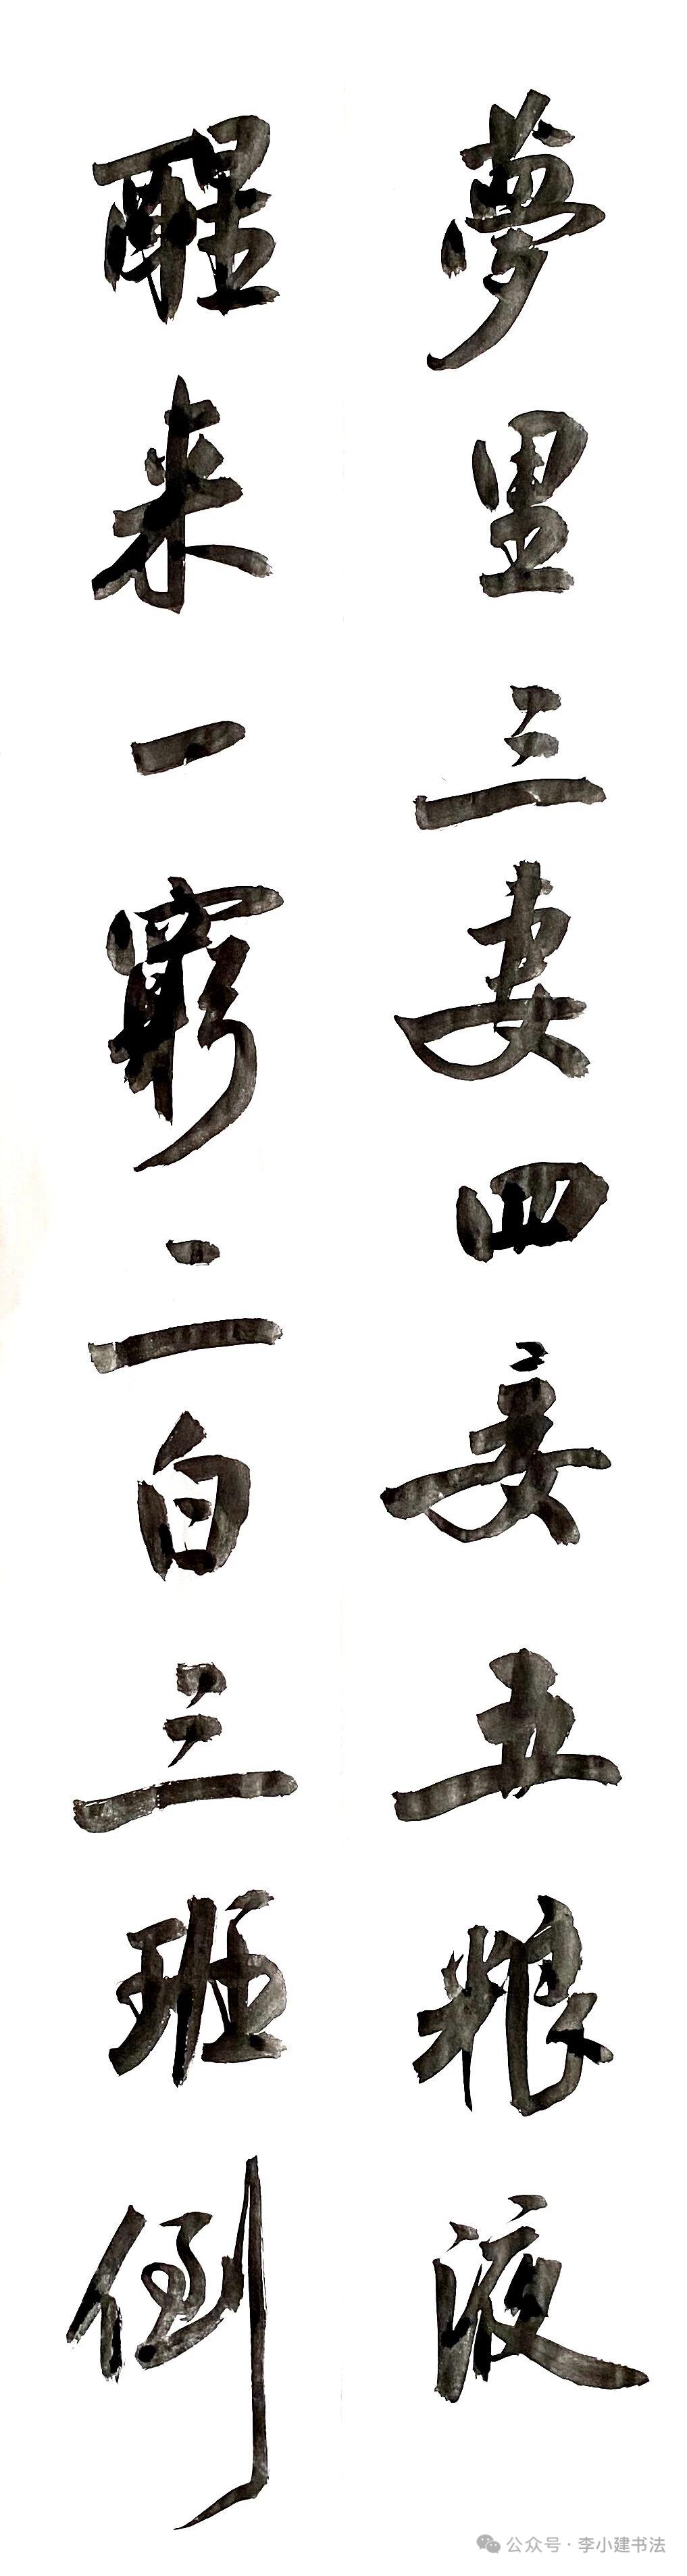 夢里三妻四妾五粮液
醒来一窮二白三班倒
公众号·李小建书法